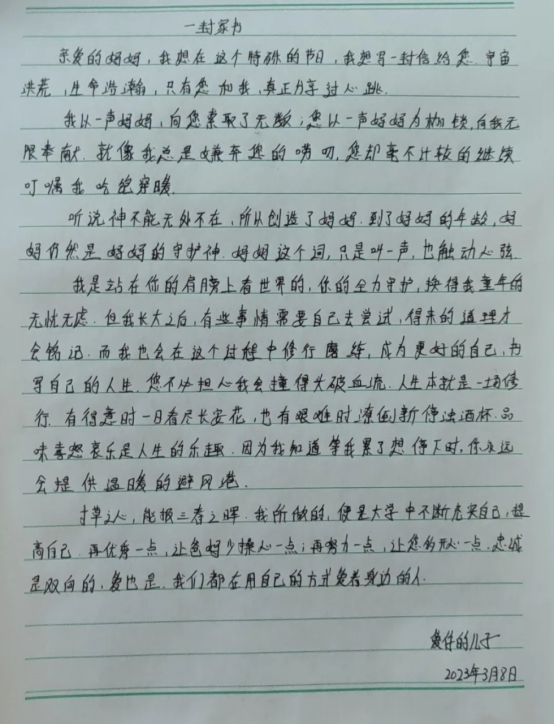 一封家书
亲爱的妈妈，我想在这个特殊的节日，我想写一封信给您. 宇宙
洪荒，生命浩瀚，只有您和我，真正分享过心跳.
我以一声妈妈，向您索取了无数；您以一声妈妈为枷锁，向我无
限奉献. 就像我总是嫌弃您的唠叨，您却毫不计较的继续
叮嘱我吃饱穿暖.
听说神不能无处不在，所以创造了妈妈. 到了妈妈的年龄，妈
妈仍然是妈妈的守护神. 妈妈这个词，只是叫一声，也触动心弦.
我是站在你的肩膀上看世界的，你的全力守护，换得我童年的
无忧无虑. 但我长大之后，有些事情需要自己去尝试，得来的道理才
会铭记. 而我也会在这个过程中修行磨练，成为更好的自己，书
写自己的人生. 您不必担心我会撞得头破血流. 人生本就是一场修
行. 有得意时一日看尽长安花，也有艰难时潦倒新停浊酒杯. 品
味喜怒哀乐是人生的乐趣. 因为我知道等我累了想停下时，你永远
会提供温暖的避风港.
寸草之心，能报三春之晖. 我所做的，便是大学中不断充实自己，提
高自己. 再优秀一点，让爸妈少操心一点；再努力一点，让您多开心一点. 忠诚
是双向的，爱也是. 我们都在用自己的方式爱着身边的人.
爱你的儿子
2023年3月8日